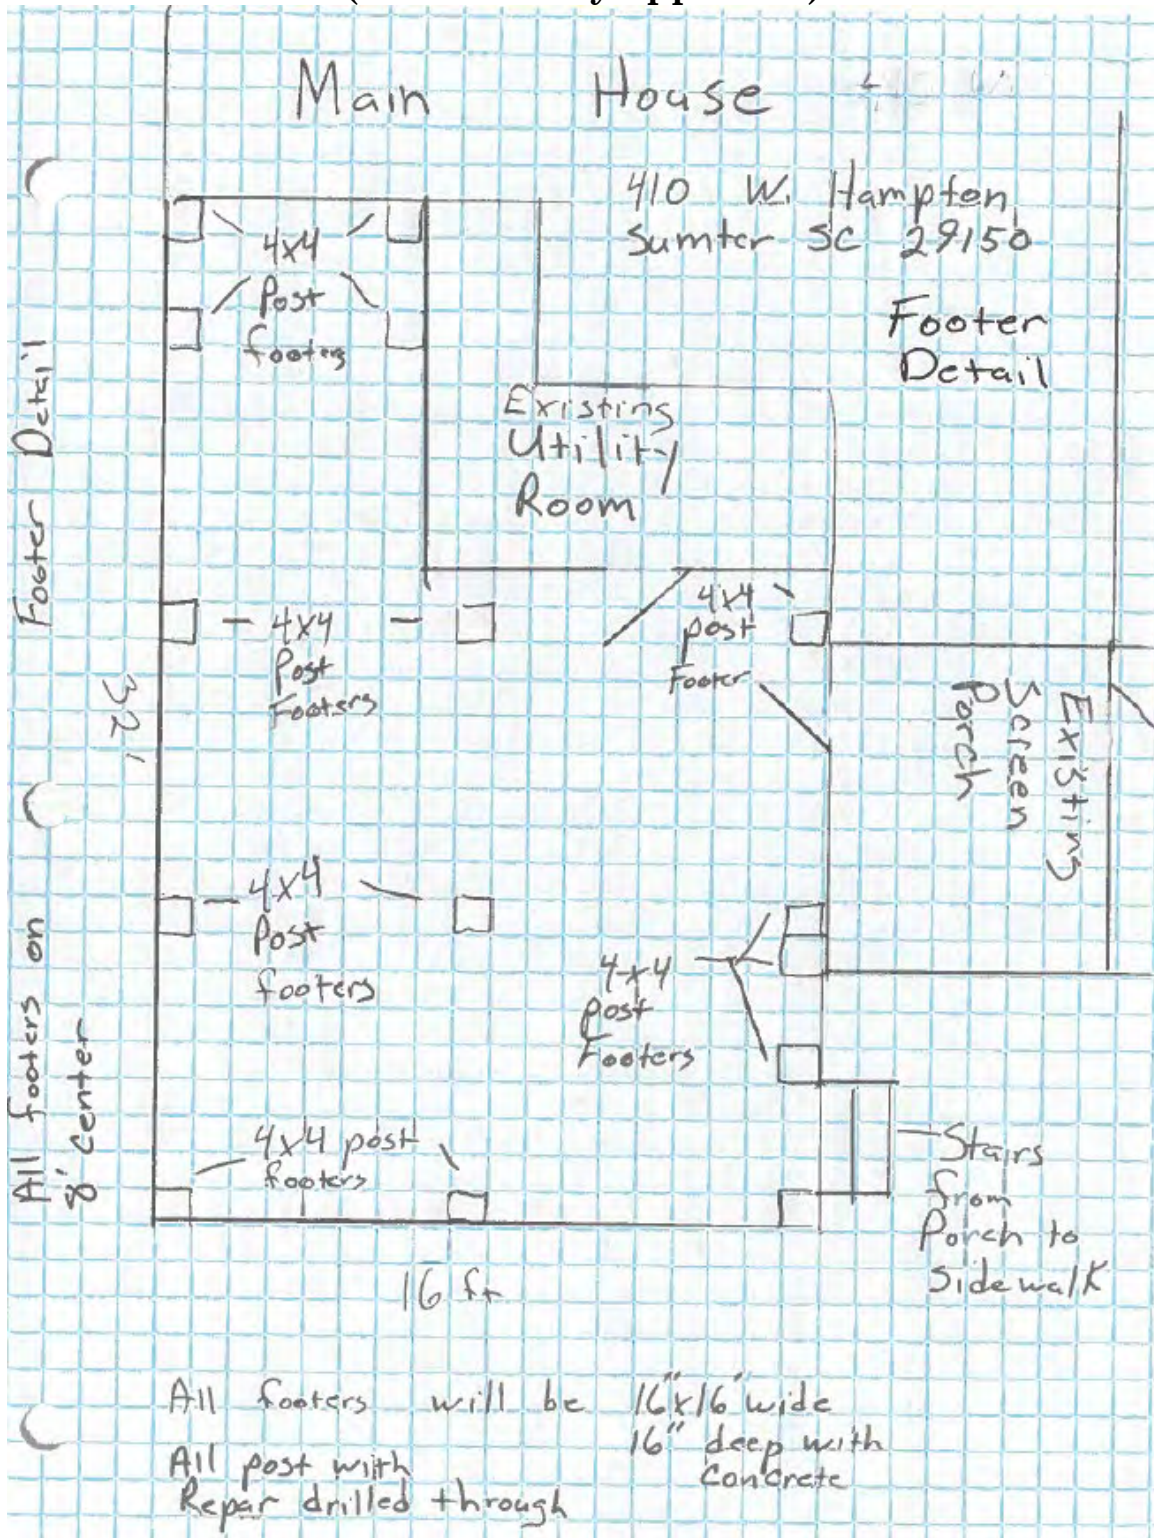 Main House
410 W. Hampton
Sumter SC 29150
Footer
Detail
4x4
Post
footers
Existing
Utility
Room
Footer Detail
4x4
Post
Footers
4x4
post
Footer
32'
Existing
Screen
Porch
4x4
Post
footers
4x4
post
Footers
All footers on
8' center
4x4 post
footers
Stairs
from
Porch to
sidewalk
16 ft
All footers will be 16"x16" wide
16" deep with
concrete
All post with
Repar drilled through